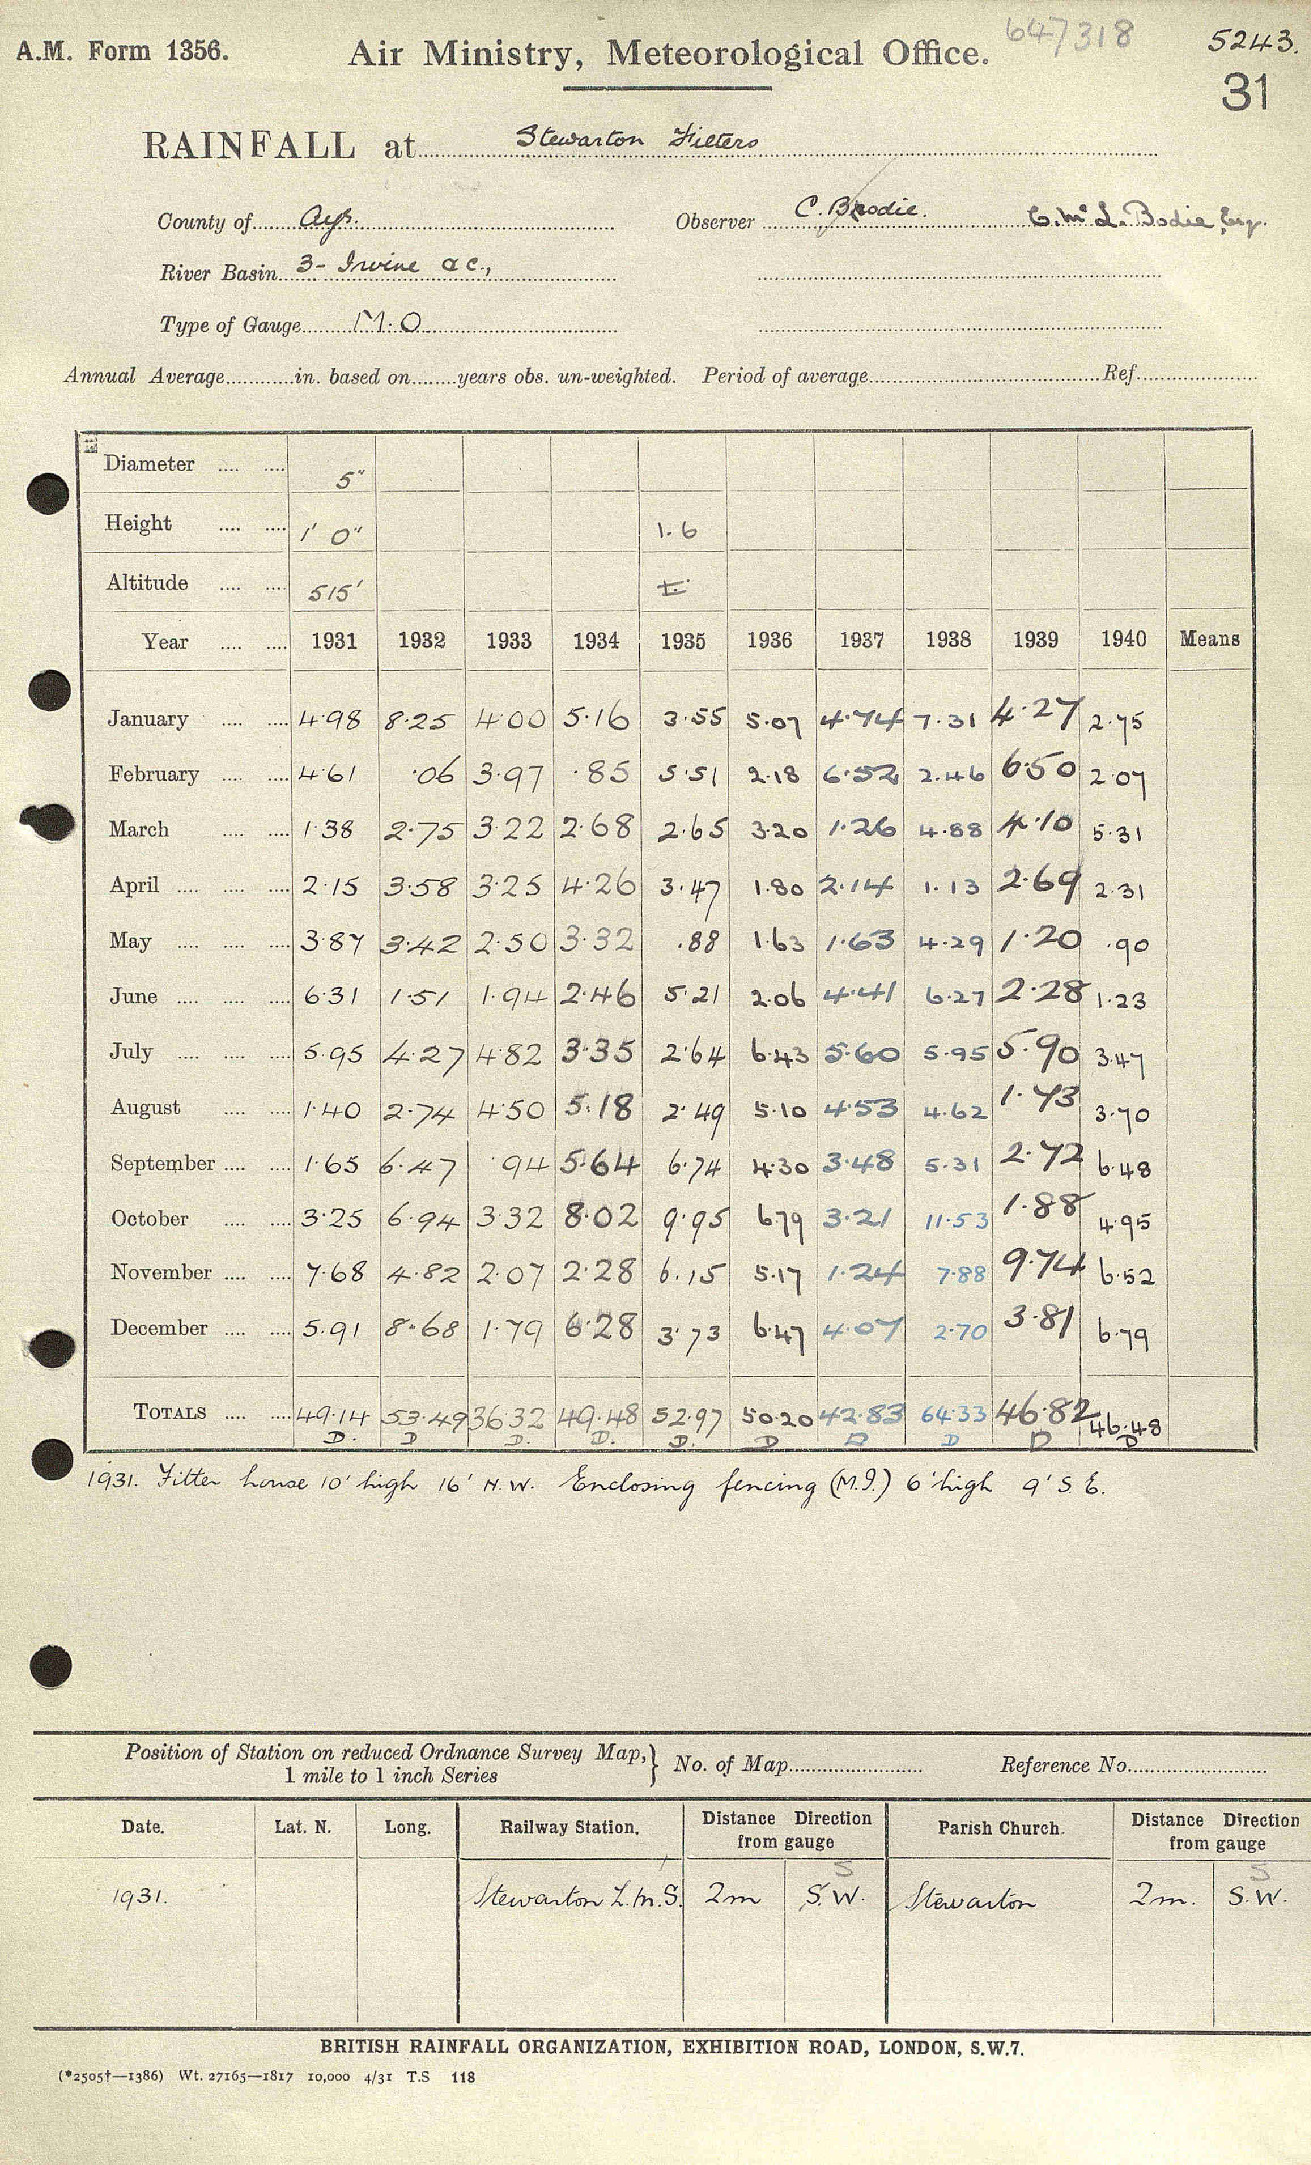 647318
A.M. Form 1356. Air Ministry, Meteorological Office. 5243.
31
RAINFALL at Stewarton Filters
County of Ayr. Observer C. Brodie. C. McL. Bodie, Esq.
River Basin 3- Irvine &c.,
Type of Gauge M.O
Annual Average in. based on years obs. un-weighted. Period of average Ref.
Diameter 5"
Height 1' 0" 1.6
Altitude 515'
Year 1931 1932 1933 1934 1935 1936 1937 1938 1939 1940 Means
January 4.98 8.25 4.00 5.16 3.55 5.07 4.74 7.31 4.27 2.75
February 4.61 .06 3.97 .85 5.51 2.18 6.52 2.46 6.50 2.07
March 1.38 2.75 3.22 2.68 2.65 3.20 1.26 4.88 4.10 5.31
April 2.15 3.58 3.25 4.26 3.47 1.80 2.14 1.13 2.69 2.31
May 3.87 3.42 2.50 3.32 .88 1.63 1.63 4.29 1.20 .90
June 6.31 1.51 1.94 2.46 5.21 2.06 4.41 6.27 2.28 1.23
July 5.95 4.27 4.82 3.35 2.64 6.43 5.60 5.95 5.90 3.47
August 1.40 2.74 4.50 5.18 2.49 5.10 4.53 4.62 1.73 3.70
September 1.65 6.47 .94 5.64 6.74 4.30 3.48 5.31 2.72 6.48
October 3.25 6.94 3.32 8.02 9.95 6.79 3.21 11.53 1.88 4.95
November 7.68 4.82 2.07 2.28 6.15 5.17 1.24 7.88 9.74 6.52
December 5.91 8.68 1.79 6.28 3.73 6.47 4.07 2.70 3.81 6.79
TOTALS 49.14 53.49 36.32 49.48 52.97 50.20 42.83 64.33 46.82 46.48
D. D D. D. D. D D D D D
1931. Filter house 10' high 16' N.W. Enclosing fencing (M.I.) 6' high 9' S.E.
Position of Station on reduced Ordnance Survey Map,} No. of Map Reference No.
1 mile to 1 inch Series
Date. Lat. N. Long. Railway Station. Distance Direction from gauge Parish Church. Distance Direction from gauge
S S
1931. Stewarton L.M.S. 2m S.W. Stewarton 2m. S.W.
BRITISH RAINFALL ORGANIZATION, EXHIBITION ROAD, LONDON, S.W.7.
(*2505†—1386) Wt. 27165—1817 10,000 4/31 T.S 118